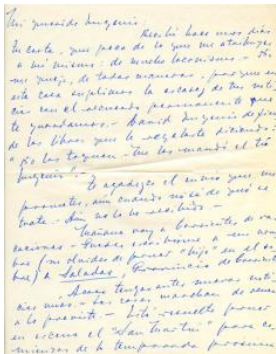 Mi querido Eugenio:
Recibí hace unos días
tu carta, que peca de lo que me
a mí mismo: de mucho laconismo. - No
me quejo, de todas maneras, porque en
esta casa suplimos la escasez de tus noti-
cias con el recuerdo permanente que
te guardamos. - David Eugenio
de los libros que le regalaste diciendo:
"No los toquen - Me los mandó el tío
Eugenio".
Te agradezco el envío que me
prometes, aún cuando no sé de qué se
trata - Aún no lo he recibido -
Mañana voy a Corrientes de va-
caciones - Puedes escribirme a mi nom-
bre (no olvides de poner "hijo" en el so-
bre) a Saladas, Provincia de Corrientes
tengas antes nuevas noti-
cias mías - Las cosas marchan
resuelto poner
en escena el "San Martín" para co-
mienzos de la temporada próxima